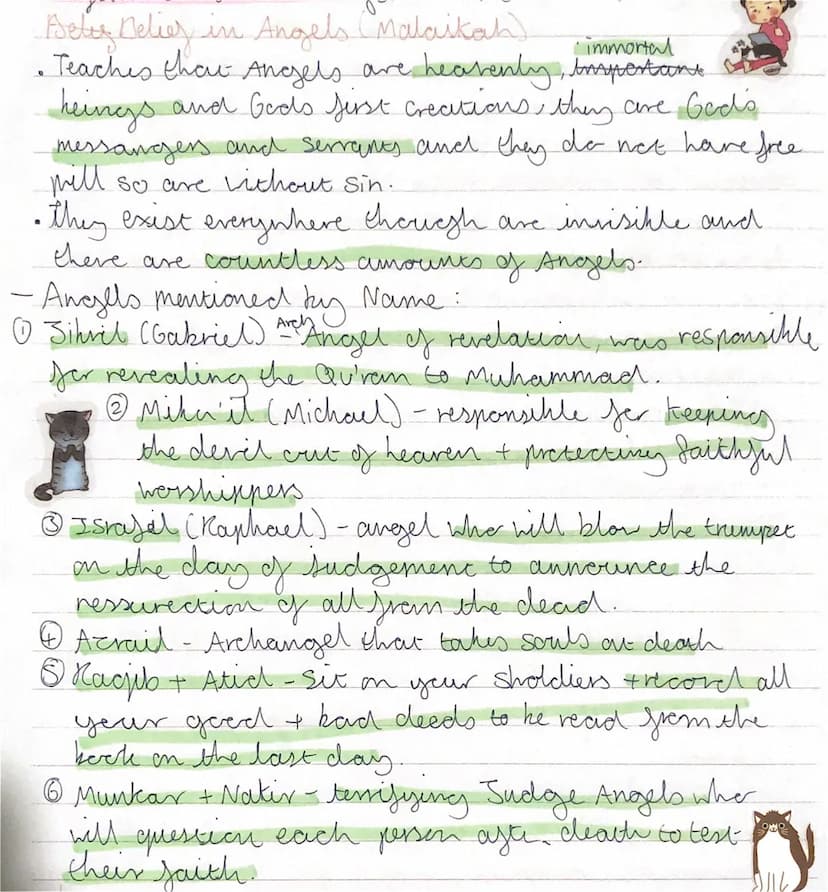 Belief in Angels (Malaikah)
• Teaches that Angels are heavenly, immortal
beings and Gods first creations, they are God's
messangers and servants and they do not have free
will so are without sin.
• They exist everywhere though are invisible and
there are countless amounts of Angels.
– Angels mentioned by Name :
① Jibril (Gabriel) – Arch Angel of revelation, was responsible
for revealing the Qu'ran to Muhammad.
② Mika'il (Michael) – responsible for keeping
the devil out of heaven + protecting faithful
worshippers
③ Israfil (Raphael) – angel who will blow the trumpet
on the day of judgement to announce the
ressurection of all from the dead.
④ Azrail – Archangel that takes souls at death
⑤ Raqib + Atid – Sit on your sholdiers + record all
your good + bad deeds to be read from the
book on the last day.
⑥ Munkar + Nakir – terrifying Judge Angels who
will question each person after death to test
their faith.